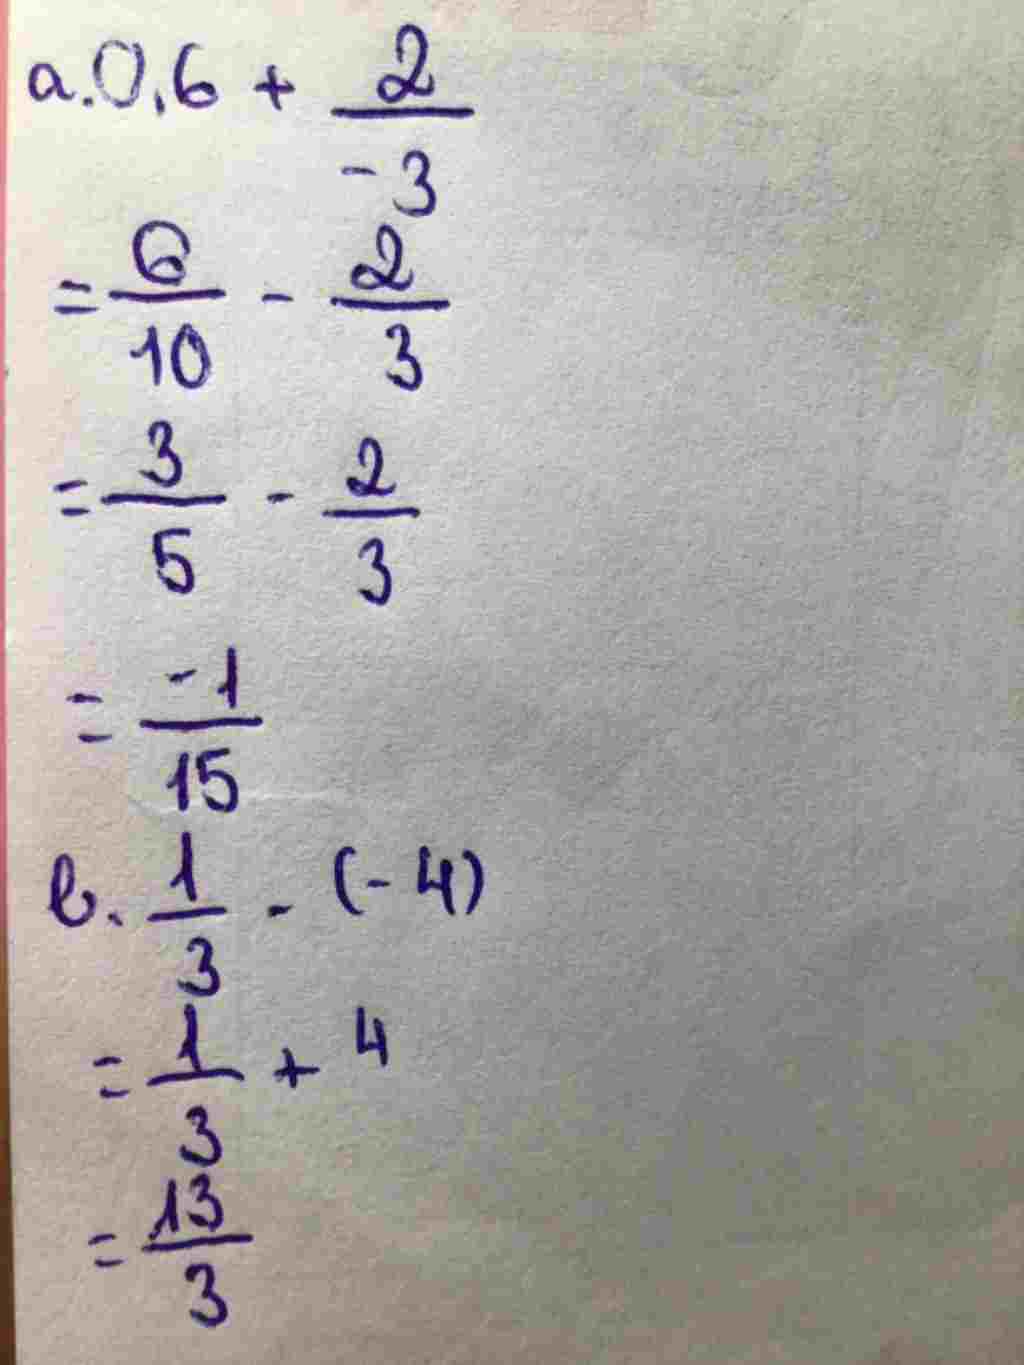 a. 0,6 + 2/-3
= 6/10 - 2/3
= 3/5 - 2/3
= -1/15
b. 1/3 - (-4)
= 1/3 + 4
= 13/3